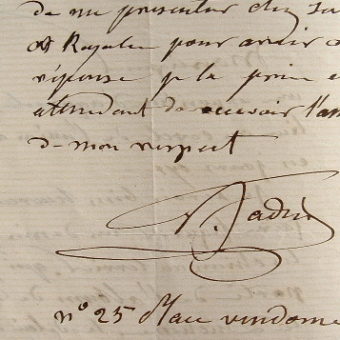 de me presenter chez sa
& Royale pour avoir
réponse que je prie
attendant de recevoir l'as
de mon respect
n° 25 Place vendome